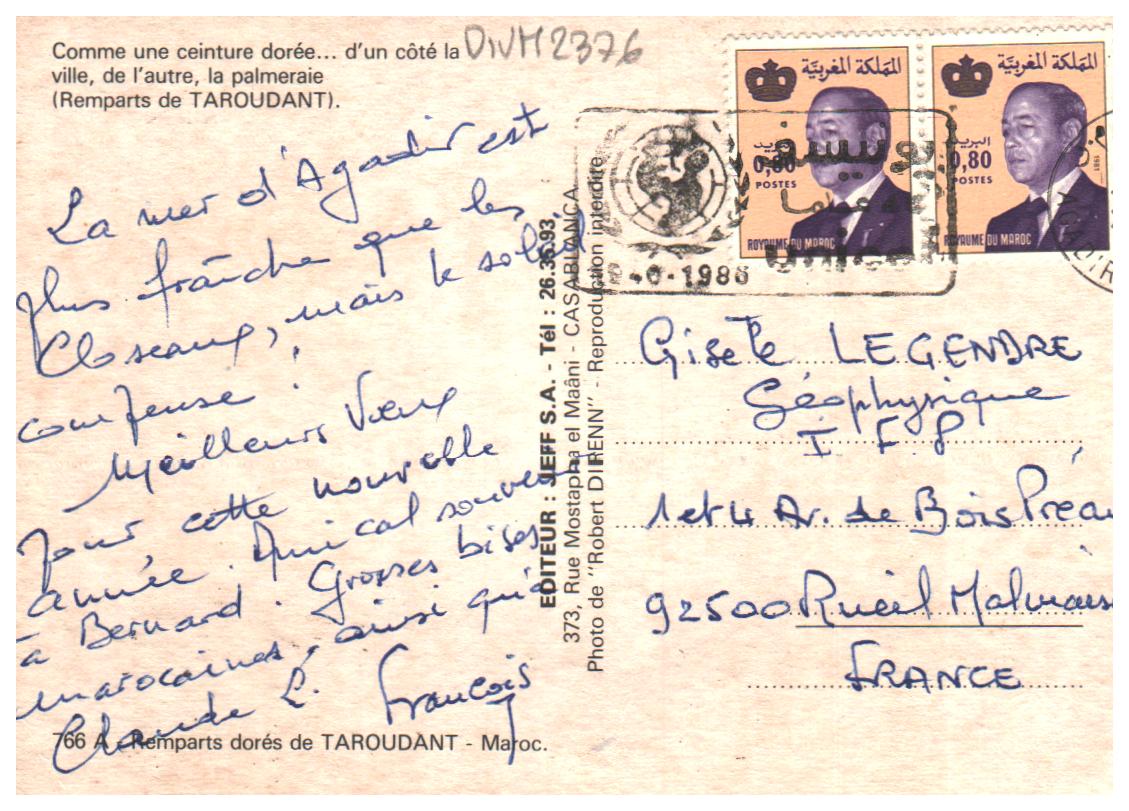 Comme une ceinture dorée... d'un côté la
ville, de l'autre, la palmeraie
(Remparts de TAROUDANT).
DIVM2376
La mer d'Agadir est
plus fraîche que les
Closeaux, mais le soleil
compense !
Meilleurs Vœux
pour cette nouvelle
année. Amical souvenir
à Bernard. Grosses bises
marocaines, ainsi qu'à
Claude L. François
766 A - Remparts dorés de TAROUDANT - Maroc.
EDITEUR : JEFF S.A. - Tél : 26.35.93
373, Rue Mostapha el Maâni - CASABLANCA
Photo de "Robert DIIRENN" - Reproduction interdite
المملكة المغربية
البريد
0,80
POSTES
ROYAUME DU MAROC
المملكة المغربية
البريد
0,80
POSTES
ROYAUME DU MAROC
يونيسف
unicef
1986
Gisele LEGENDRE
Géophysique
I F P
1 et 4 Av. de Bois Préau
92500 Rueil Malmaison
FRANCE